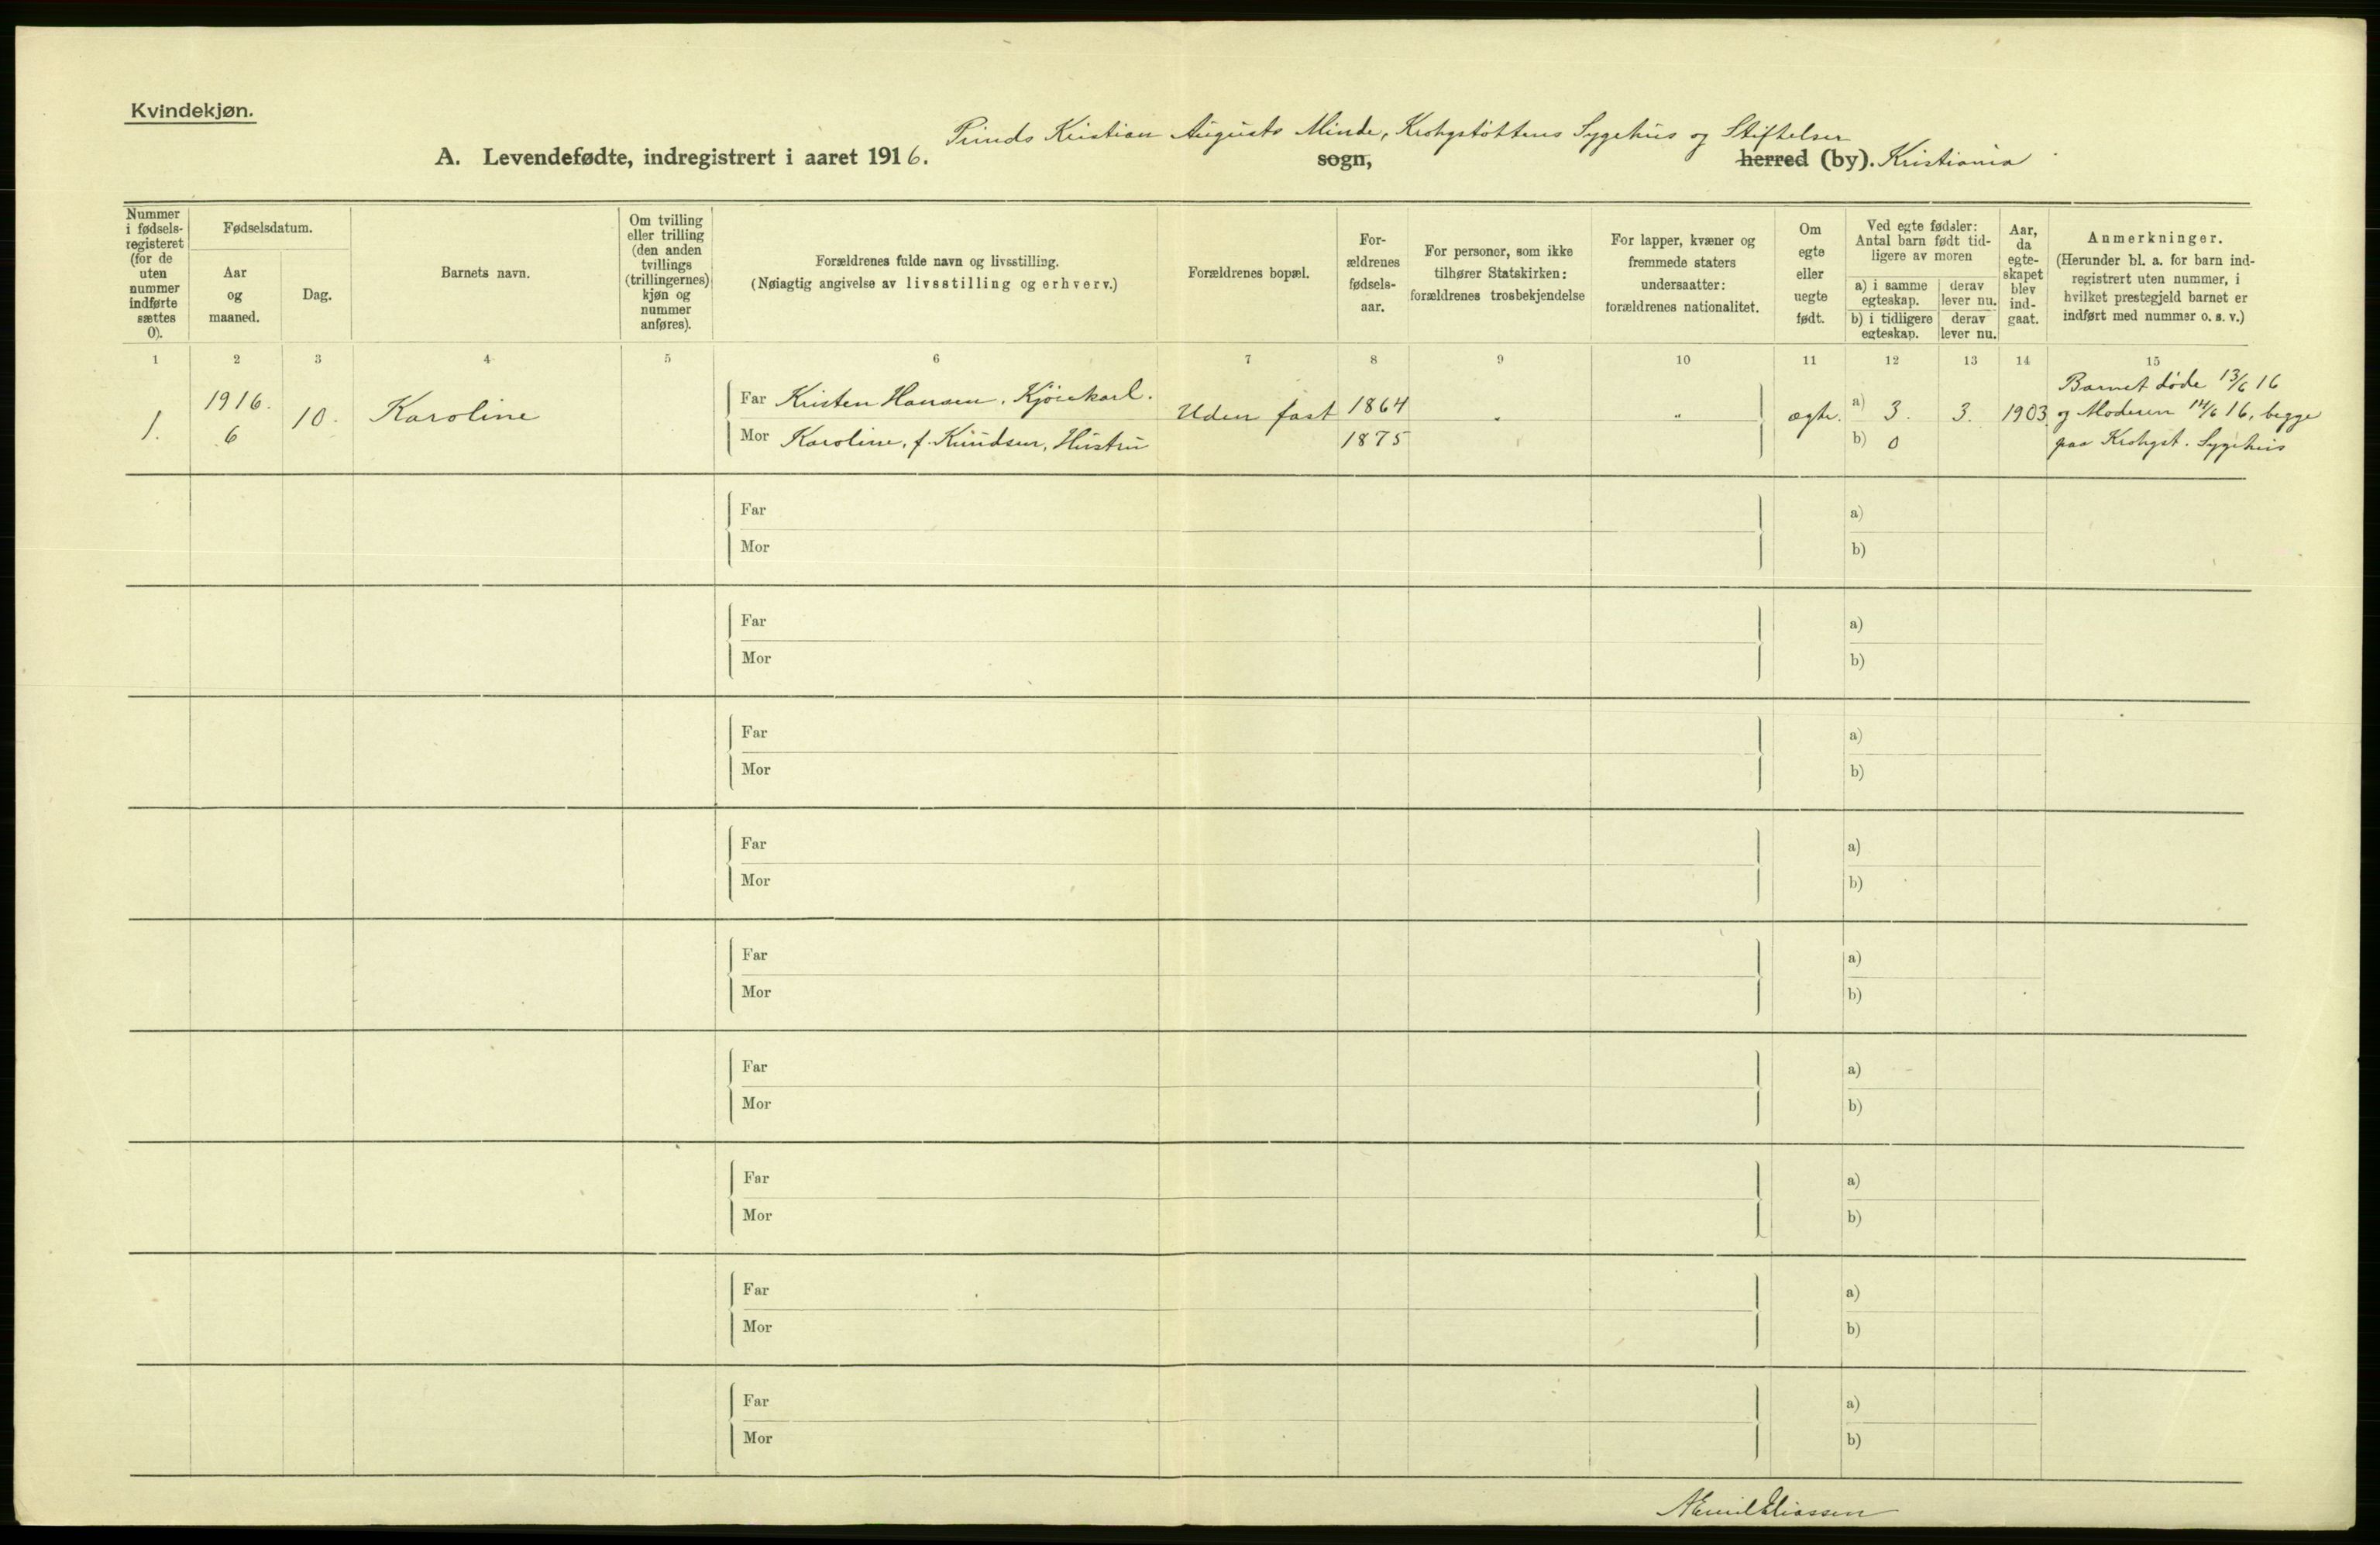 Kvindekjøn.
Prinds Kristian Augusts Minde, Krohgstøttens Sygehus og Stiftelser
A. Levendefødte, indregistrert i aaret 1916. sogn, herred (by). Kristiania
Nummer
i fødsels-
registeret
(for de
uten
nummer
indførte
sættes
0).
Fødselsdatum.
Aar
og
maaned.
Dag.
Barnets navn.
Om tvilling
eller trilling
(den anden
tvillings
(trillingernes)
kjøn og
nummer
anføres).
Forældrenes fulde navn og livsstilling.
(Nøiagtig angivelse av livsstilling og erhverv.)
Forældrenes bopæl.
For-
ældrenes
fødsels-
aar.
For personer, som ikke
tilhører Statskirken:
forældrenes trosbekjendelse
For lapper, kvæner og
fremmede staters
undersaatter:
forældrenes nationalitet.
Om
egte
eller
uegte
født.
Ved egte fødsler:
Antal barn født tid-
ligere av moren
a) i samme
egteskap.
derav
lever nu.
b) i tidligere
egteskap.
derav
lever nu.
Aar,
da
egte-
skapet
blev
ind-
gaat.
Anmerkninger.
(Herunder bl. a. for barn ind-
registrert uten nummer, i
hvilket prestegjeld barnet er
indført med nummer o. s. v.)
1 2 3 4 5 6 7 8 9 10 11 12 13 14 15
1.
1916.
6
10.
Karoline
Far Kristen Hansen, Kjørekarl.
Mor Karoline, f. Knudsen, Hustru
Uden fast
1864
1875
"
"
ægte.
a) 3. 3.
b) 0
1903
Barnet døde 13/6 16
og Moderen 14/6 16, begge
paa Krohgst. Sygehus
Far a)
Mor b)
Far a)
Mor b)
Far a)
Mor b)
Far a)
Mor b)
Far a)
Mor b)
Far a)
Mor b)
Far a)
Mor b)
Far a)
Mor b)
Far a)
Mor b)
Emil Eliassen